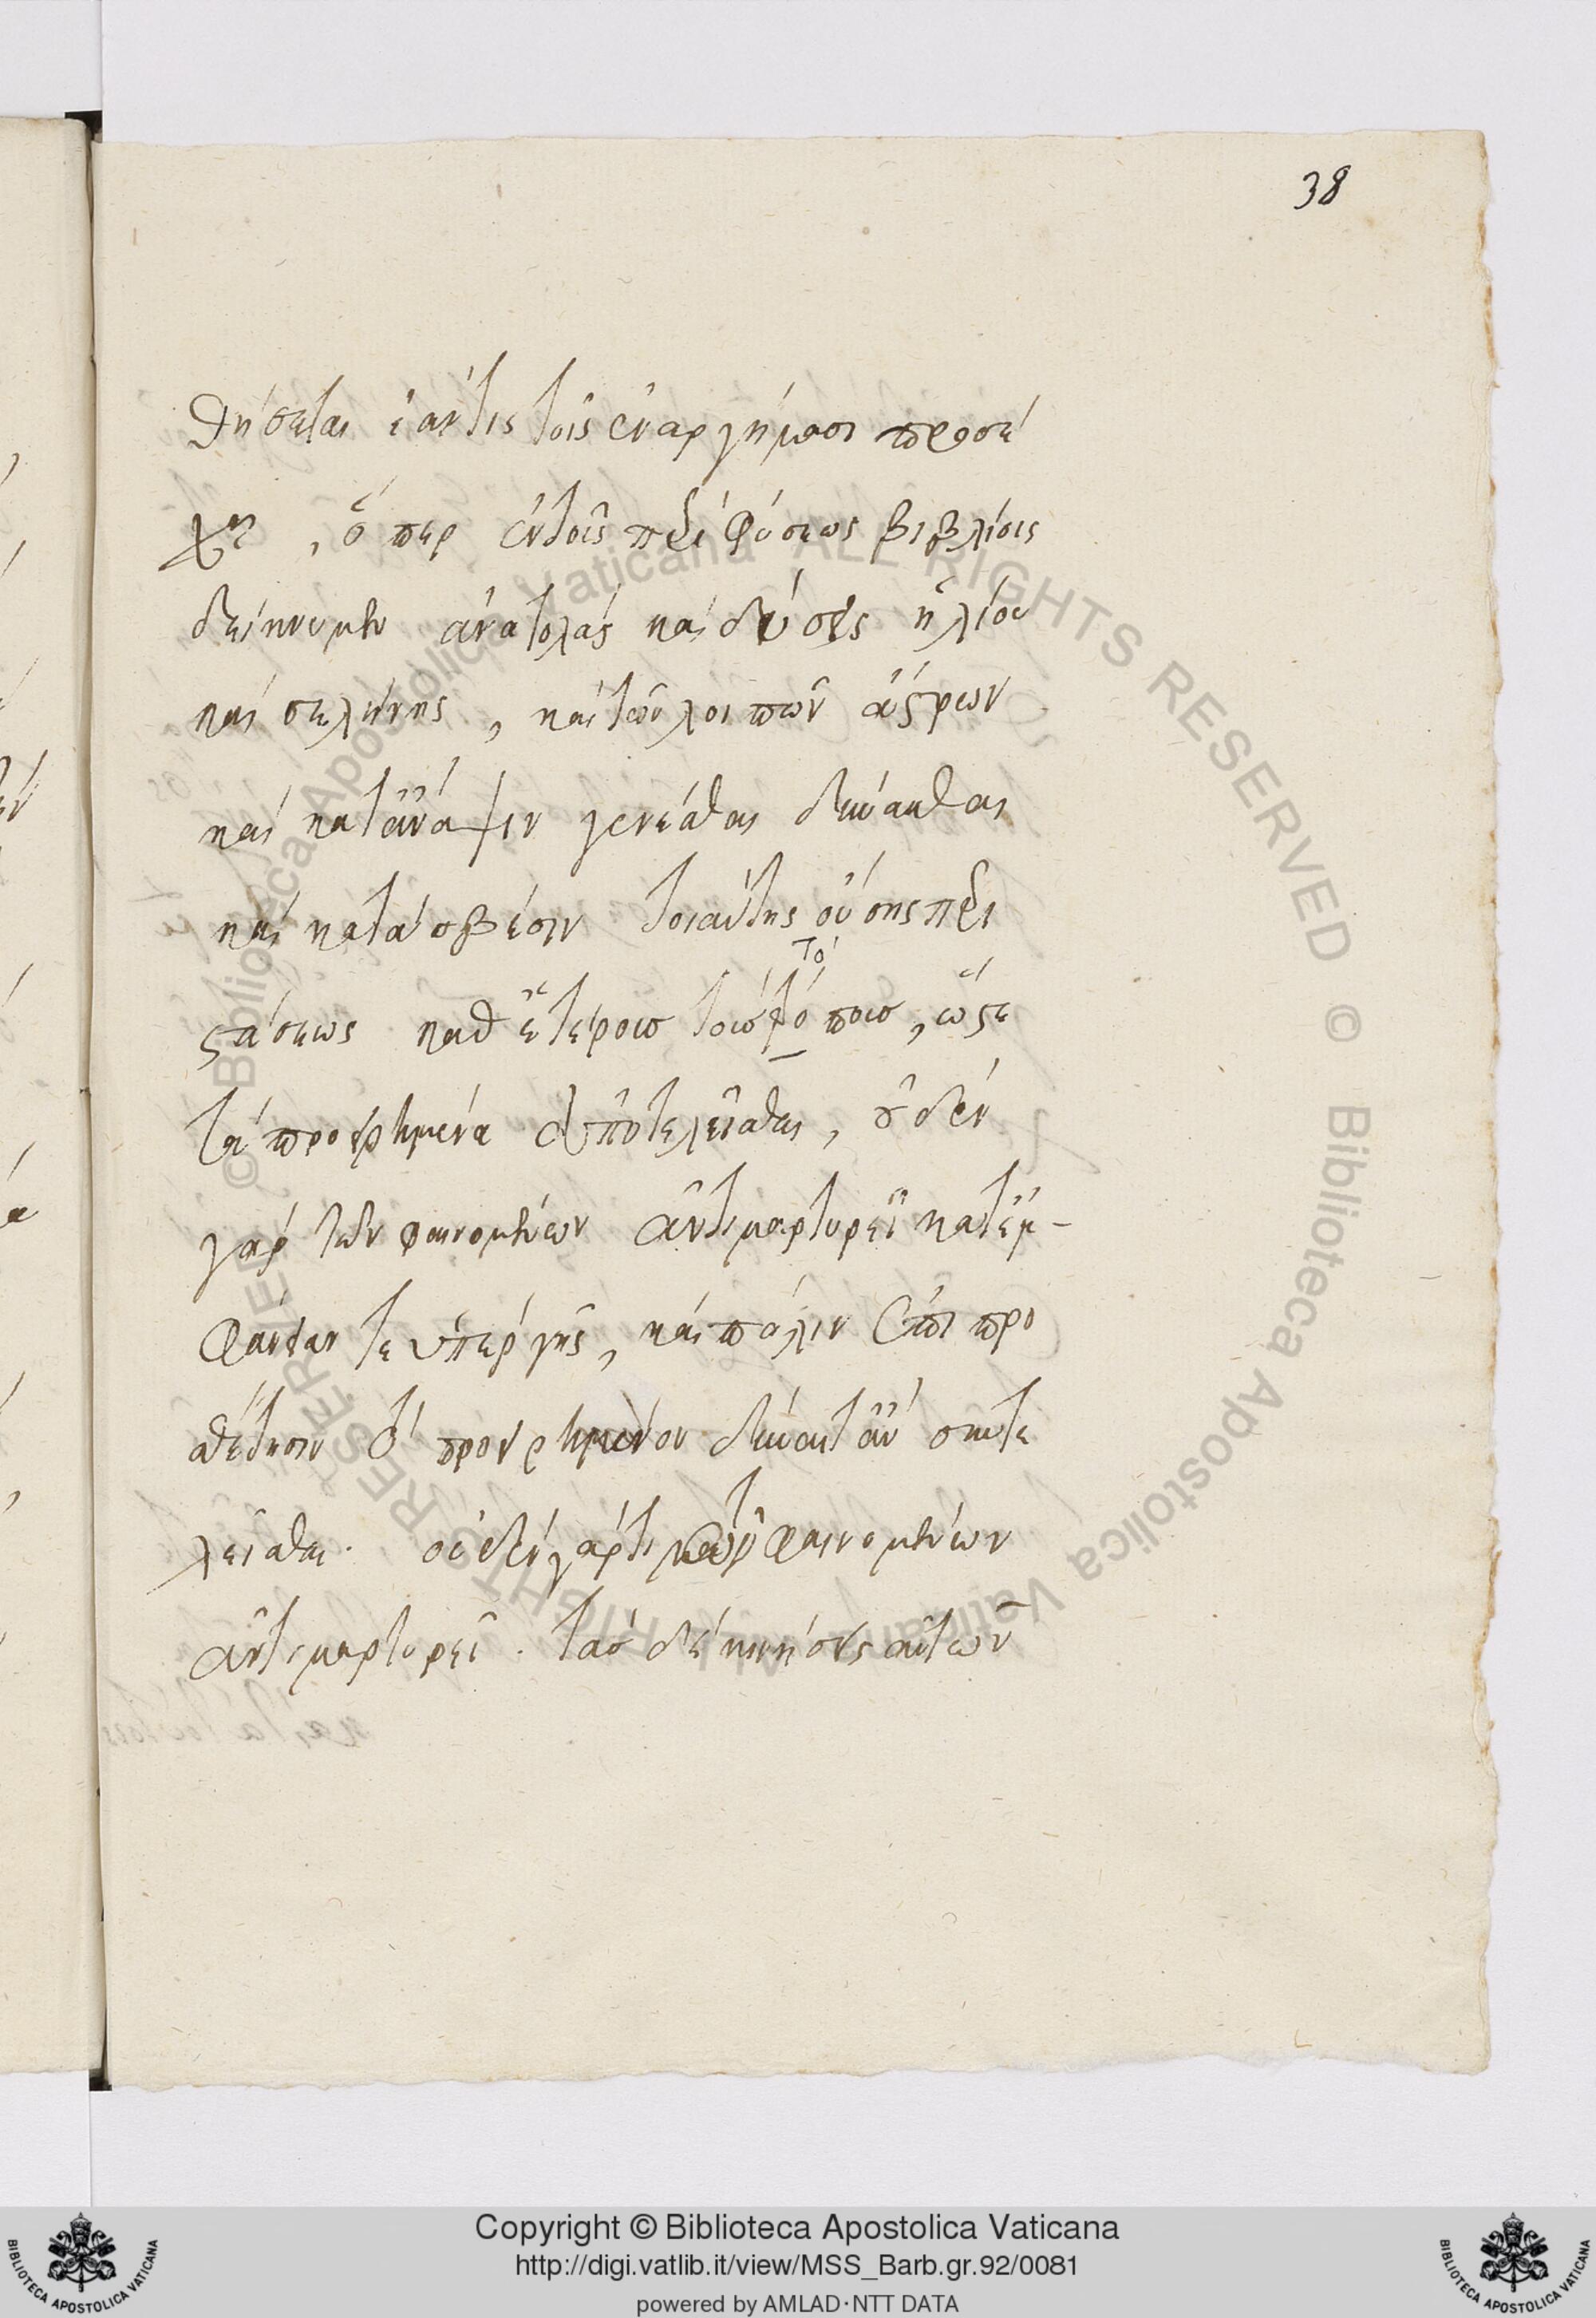 38
θήσεται ἐάν τις τοῖς ἐναργήμασι προσέ
χῃ, ὅπερ ἐν τοῖς περὶ φύσεως βιβλίοις
δείκνυμεν ἀνατολὰς καὶ δύσεις ἡλίου
καὶ σελήνης, καὶ τῶν λοιπῶν ἄστρων
καὶ κατ' ἄναψιν γενέσθαι δύνασθαι
καὶ κατὰ σβέσιν τοιαύτης οὔσης περι
στάσεως καθ' ἑτέρους τοὺς τόπους, ὥστε
τὰ προειρημένα ἀποτελεῖσθαι, οὐδὲν
γὰρ τῶν φαινομένων ἀντιμαρτυρεῖ κατ' ἐμ-
φάνειαν τε ὑπὲρ γῆς, καὶ πάλιν ἐπιπρο
σθέτησιν τὸ προειρημένον δύναιτ' ἂν συντε
λεῖσθαι. οὐδὲν γάρ τι τῶν φαινομένων
ἀντιμαρτυρεῖ. τὰς δὲ κινήσεις αὐτῶν
Copyright © Biblioteca Apostolica Vaticana
http://digi.vatlib.it/view/MSS_Barb.gr.92/0081
powered by AMLAD·NTT DATA
BIBLIOTECA APOSTOLICA VATICANA
BIBLIOTECA APOSTOLICA VATICANA
© Biblioteca Apostolica Vaticana ALL RIGHTS RESERVED © Biblioteca Apostolica Vaticana ALL RIGHTS RESERVED